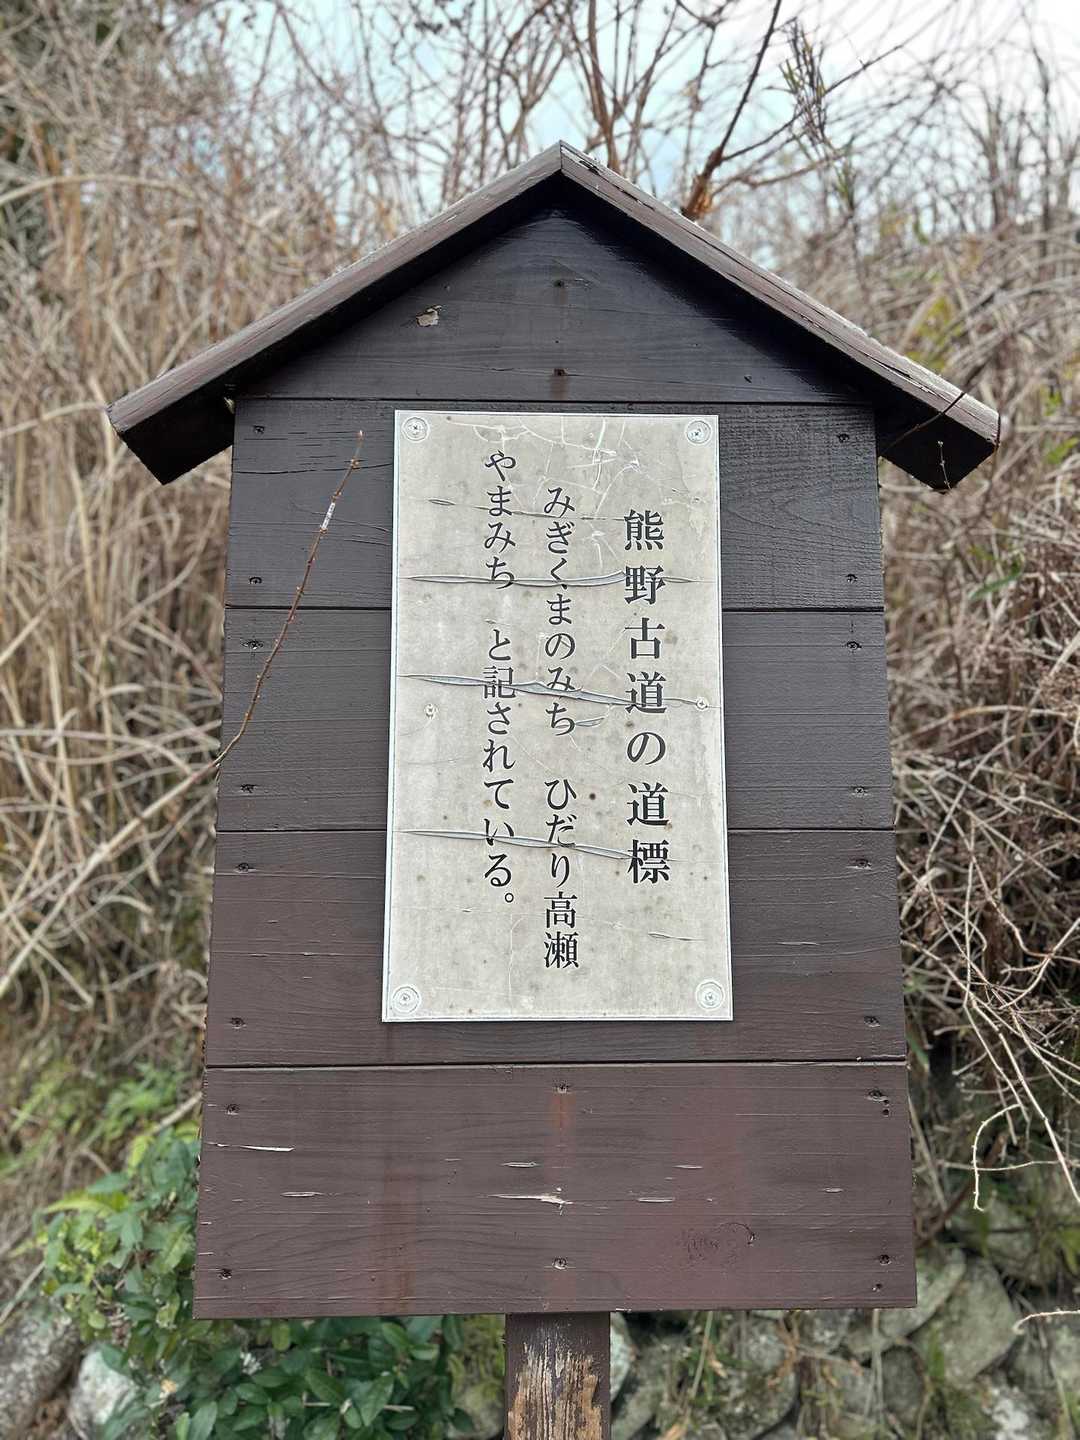 熊野古道の道標
みぎくまのみち　ひだり高瀬
やまみち　と記されている。